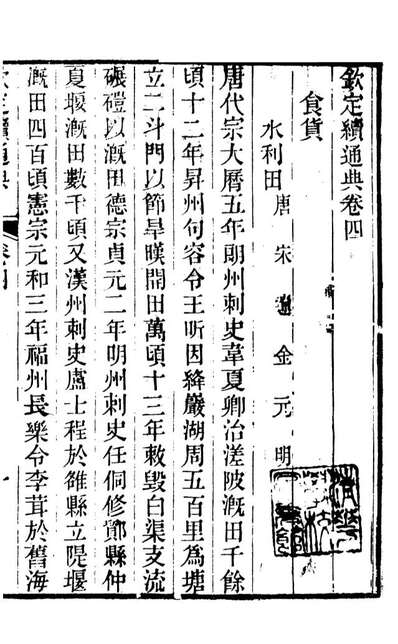 欽定續通典卷四
食貨
水利田唐 宋 遼 金 元 明
唐代宗大曆五年朗州刺史韋夏卿治槎陂溉田千餘
頃十二年昇州句容令王昕因絳巖湖周五百里為塘
立二斗門以節旱暵開田萬頃十三年敕毀白渠支流
碾磑以溉田德宗貞元二年明州刺史任侗修鄮縣仲
夏堰溉田數千頃又漢州刺史盧士珵於雒縣立隄堰
溉田四百頃憲宗元和三年福州長樂令李茸於舊海